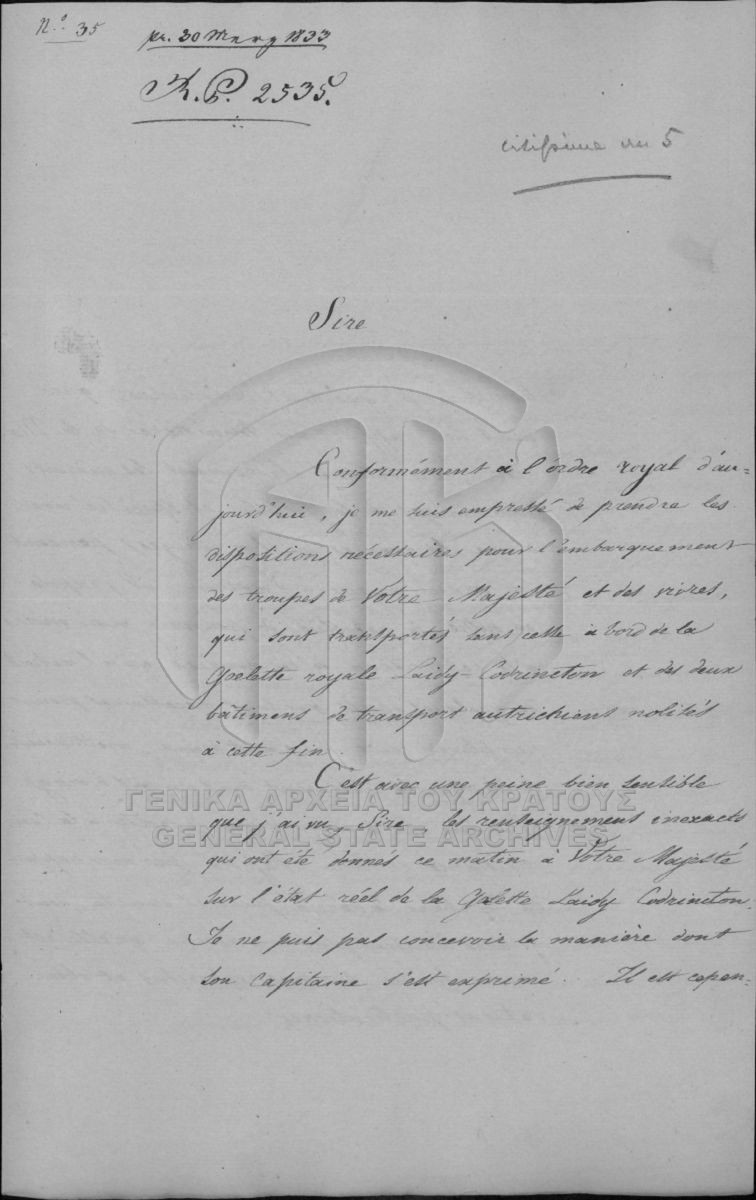 N.º 35
pr. 30 Merz 1833
R.P. 2535.
citissime
5
Sire
Conformément à l'órdre royal d'au=
jourd'hui, je me suis empressé de prendre les
dispositions nécessaires pour l'embarquement
des troupes de Vótre Majesté et des vivres,
qui sont transportés sans cesse à bord de la
Goelette royale Laidy-Codrincton et des deux
bâtimens de transport autrichiens nolisés
à cette fin.
C'est avec une peine bien sensible
que j'ai vu, Sire, les renseignement inexacts
qui ont été donnés ce matin à Vótre Majesté
sur l'état réel de la Goelette Laidy Codrincton.
Je ne puis pas concevoir la manière dont
son Capitaine s'est exprimé. Il est cepen=
ΓΕΝΙΚΑ ΑΡΧΕΙΑ ΤΟΥ ΚΡΑΤΟΥΣ
GENERAL STATE ARCHIVES